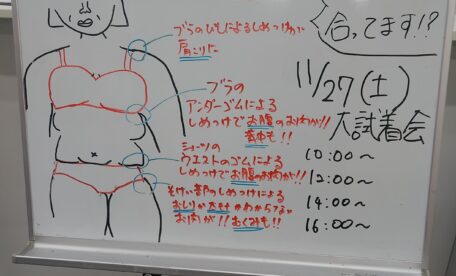 合ってます!?
ブラのひもによるしめつけが
肩こりに
11/27(土)
大試着会
10:00~
12:00~
14:00~
16:00~
ブラの
アンダーゴムによる
しめつけでお腹のお肉が!!
背中も!!
ショーツの
ウエストのゴムによる
しめつけでお腹のお肉が!!
そけい部のしめつけによる
おしりか
お肉が!!
も!!